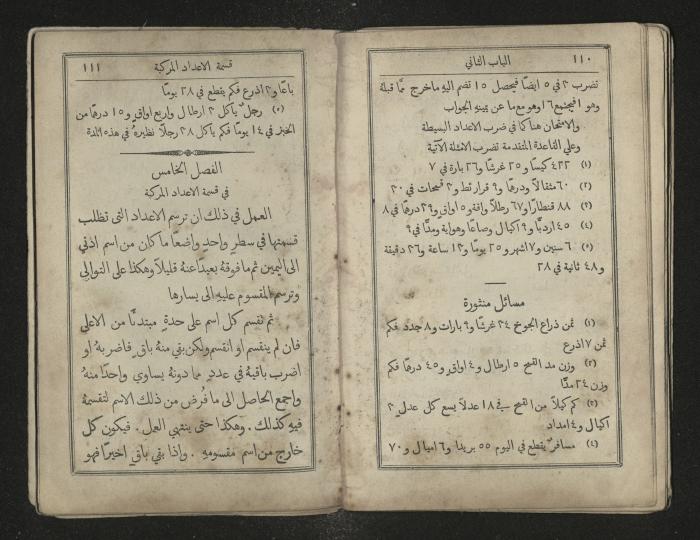 ١١٠ الباب الثاني
تضرب ٣ في ٥ ايضًا فيحصل ١٥ تضم اليه ماخرج ممّا قبلة
وهو ١ فيجتمع ١٦ وهو مع ما عن يمينهِ الجواب
والامتحان هنا كما في ضرب الاعداد البسيطة
وعلى القاعدة المتقدمة تضرب الامثلة الآتية
(١) ٤٣٢ كيسًا و٢٥ غرشًا و٢٦ بارة في ٧
(٢) ٦٠ مثقالاً ودرهمًا و٩ قراريط و٢ قمحات في ٢٠
(٣) ٨٨ قنطارًا و٦٧ رطلاً واقة و٥ اواقٍ و٢٩ درهمًا في ٨
(٤) ٤٥ اردبًّا و٩ اكيال وصاعًا وهواية ومدًّا في ٩
(٥) ٦ سنين و٧ اشهر و٢٥ يومًا و١٣ ساعة و٢٦ دقيقة
و٤٨ ثانية في ٢٨
مسائل منثورة
(١) ثمن ذراع الجوخ ٢٤ غرشًا و٩ بارات و٨ جدد فكم
ثمن ٧ اذرع
(٢) وزن مد القمح ٥ ارطال و٤ اواقٍ و٤٥ درهمًا فكم
وزن ٢٤ مدًّا
(٣) كم كيلاً من القمح في ١٨ عدلاً يسع كل عدلٍ ٢
اكيال و٤ امداد
(٤) مسافرٌ يقطع في اليوم ٥٥ بريدًا و٦ اميال و٧٠
قسمة الاعداد المركبة ١١١
باعًا و٢ اذرع فكم يقطع في ٢٨ يومًا
(٥) رجلٌ ياكل ٢ ارطال واربع اواقٍ و١٥ درهمًا من
الخبز في ١٤ يومًا فكم ياكل ٢٨ رجلاً نظيرهُ في هذه المدة
الفصل الخامس
في قسمة الاعداد المركبة
العمل في ذلك ان ترسم الاعداد التي تطلب
قسمتها في سطرٍ واحدٍ واضعًا ما كان من اسم ادنى
الى اليمين ثم ما فوقهُ بعيدًا عنهُ قليلاً وهكذا على التوالي
وترسم المقسوم عليهِ الى يسارها
ثم تقسم كل اسم على حدةٍ مبتدئًا من الاعلى
فان لم ينقسم او انقسم ولكن بقي منهُ باقٍ فاضربهُ او
اضرب باقيهُ في عددِ ما دونهُ يساوي واحدًا منهُ
واجمع الحاصل الى ما فُرض من ذلك الاسم لتقسمهُ
فيهِ كذلك . وهكذا حتى ينتهي العمل . فيكون كل
خارج من اسم مقسومهِ . واذا بقي باقٍ اخيرًا فهو